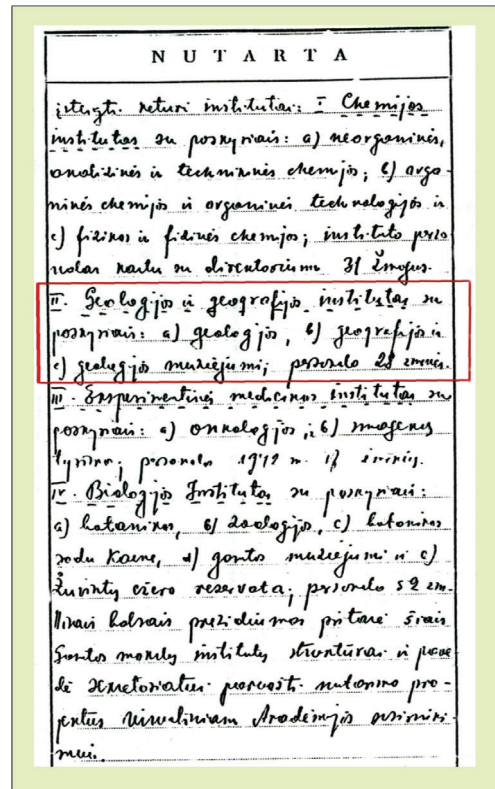 NUTARTA
įsteigti keturi institutai: I Chemijos
institutas su poskyriais: a) neorganinės,
analizinės ir techninės chemijos; b) orga-
ninės chemijos ir organinės technologijos ir
c) fizikos ir fizinės chemijos; instituto perso-
nalas kartu su direktoriumi 31 žmogus.
II. Geologijos ir geografijos institutas su
poskyriais: a) geologijos, b) geografijos ir
c) geologijos muziejumi; personalo 28 žmonės.
III. Eksperimentinės medicinos institutas su
poskyriais: a) onkologijos ir b) smegenų
tyrimo; personalo 1942 m. 17 žmonių.
IV. Biologijos Institutas su poskyriais:
a) botanikos, b) zoologijos, c) botanikos
sodu Kaune, d) gamtos muziejumi ir e)
Žuvinto ežero rezervatą; personalo 52 žm.
Visais balsais prezidiumas pritarė šiai
Gamtos mokslų institutų struktūrai ir pave-
dė sekretoriatui paruošti nutarimo pro-
jektus visuotiniam Akademijos susirinki-
mui.